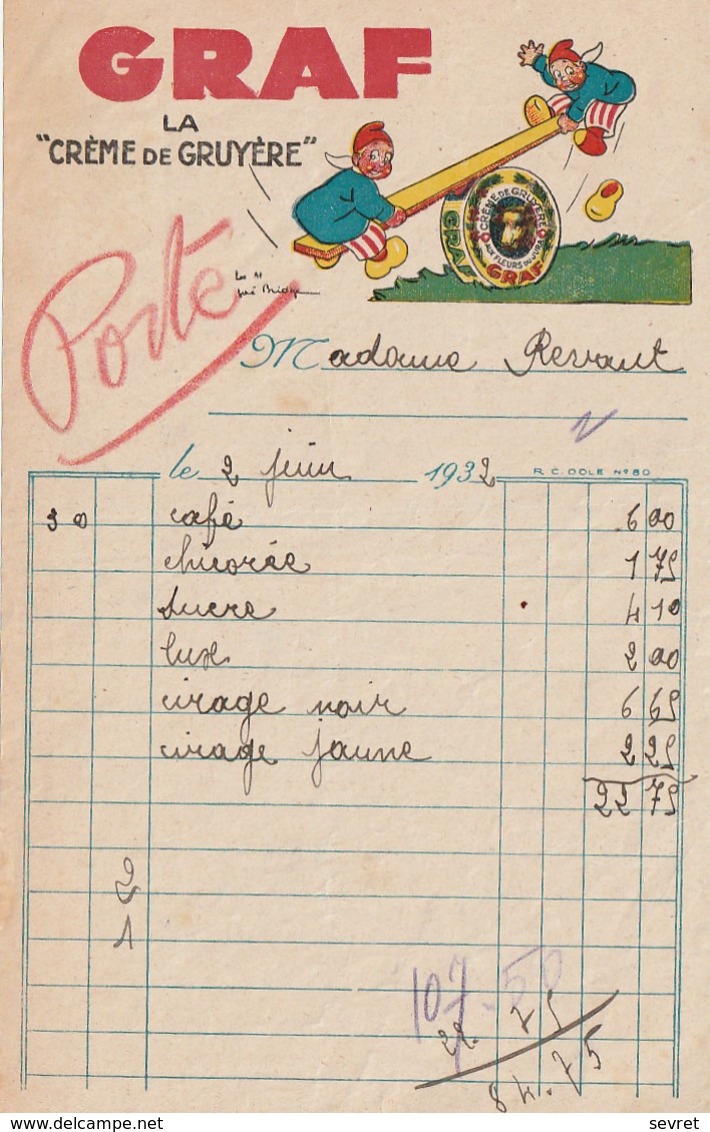 GRAF
LA
"CRÈME DE GRUYÈRE"
CRÈME DE GRUYÈRE
GRAF
FLEURS DU JURA
GRAF
Porte
Madame Revaut
le 2 juin 1932 R.C. DOLE Nº 80
30 café 6 00
chicorée 1 75
sucre 4 10
lux 2 00
cirage noir 6 65
cirage jaune 2 25
22 75
2
1
107.50
22.75
84.75
delcampe.net
sevret